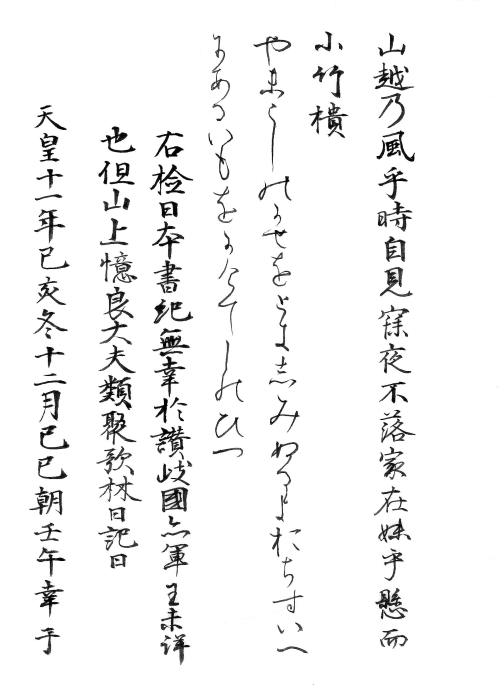 山越乃風乎時自見寐夜不落家在妹乎懸而
小竹樻
やまこしのかせをときしみぬるよおちすいへ
にあるいもをかけてしのひつ
右検日本書紀無幸於讃岐國亦軍王未詳
也但山上憶良大夫類聚歌林曰記曰
天皇十一年己亥冬十二月己巳朝壬午幸于